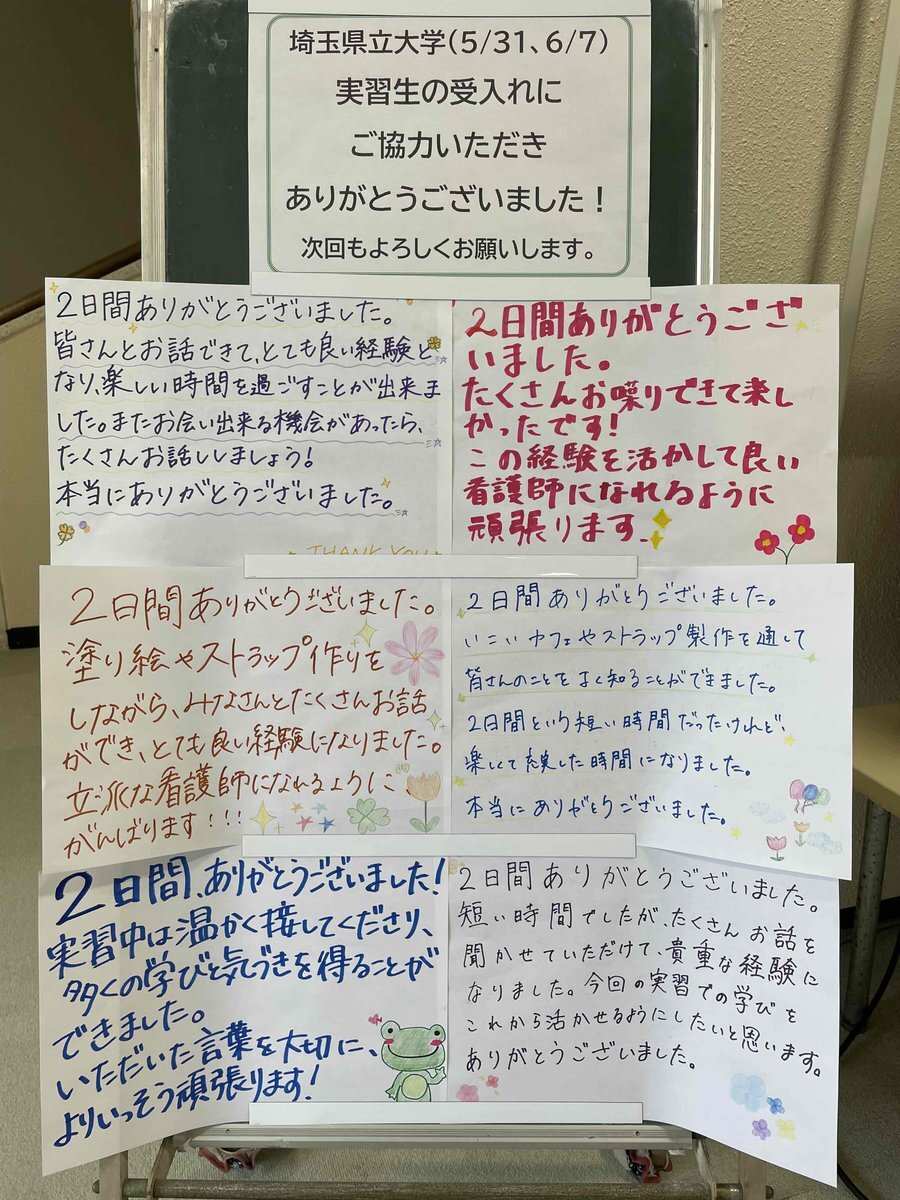 埼玉県立大学(5/31、6/7)
実習生の受入れに
ご協力いただき
ありがとうございました！
次回もよろしくお願いします。
2日間ありがとうございました。
皆さんとお話できて、とても良い経験と
なり、楽しい時間を過ごすことが出来ま
した。またお会い出来る機会があったら、
たくさんお話ししましょう!
本当にありがとうございました。
THANK YOU
2日間ありがとうござ
いました。
たくさんお喋りできて楽し
かったです!
この経験を活かして良い
看護師になれるように
頑張ります。
2日間ありがとうございました。
塗り絵やストラップ作りを
しながら、みなさんとたくさんお話
ができ、とても良い経験になりました。
立派な看護師になれるように
がんばります!!!
2日間ありがとうございました。
いこいカフェやストラップ製作を通して
皆さんのことをよく知ることができました。
2日間という短い時間だったけれど、
楽しくて充実した時間になりました。
本当にありがとうございました。
2日間、ありがとうございました!
実習中は温かく接してくださり、
多くの学びと気づきを得ることが
できました。
いただいた言葉を大切に、
よりいっそう頑張ります!
2日間ありがとうございました。
短い時間でしたが、たくさんお話を
聞かせていただけて、貴重な経験に
なりました。今回の実習での学びを
これから活かせるようにしたいと思います。
ありがとうございました。